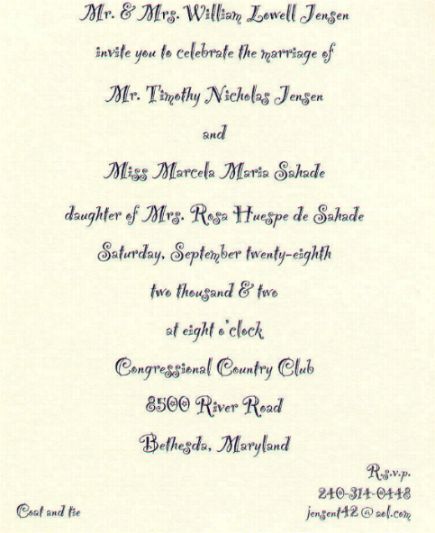 Mr. & Mrs. William Lowell Jensen
invite you to celebrate the marriage of
Mr. Timothy Nicholas Jensen
and
Miss Marcela Maria Sahade
daughter of Mrs. Rosa Huespe de Sahade
Saturday, September twenty-eighth
two thousand & two
at eight o'clock
Congressional Country Club
8500 River Road
Bethesda, Maryland
R.s.v.p.
240-314-0448
Coat and tie
jensent42@aol.com